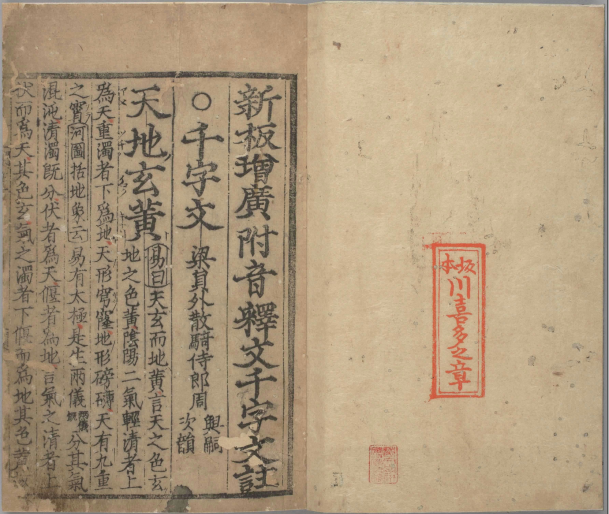 川喜多之章
新板增廣附音釋文千字文註
○千字文 梁員外散騎侍郎周興嗣次韻
天地玄黃 易曰天玄而地黃言天之色玄
地之色黃陰陽二氣輕清者上
爲天重濁者下爲地天形穹窿地形磅礴天有九重
之霄河圖括地象云易有太極是生兩儀分其氣
混沌清濁既分伏者為天偃者為地言氣之清者上
伏而爲天其色玄氣之濁者下偃而爲地其色黃